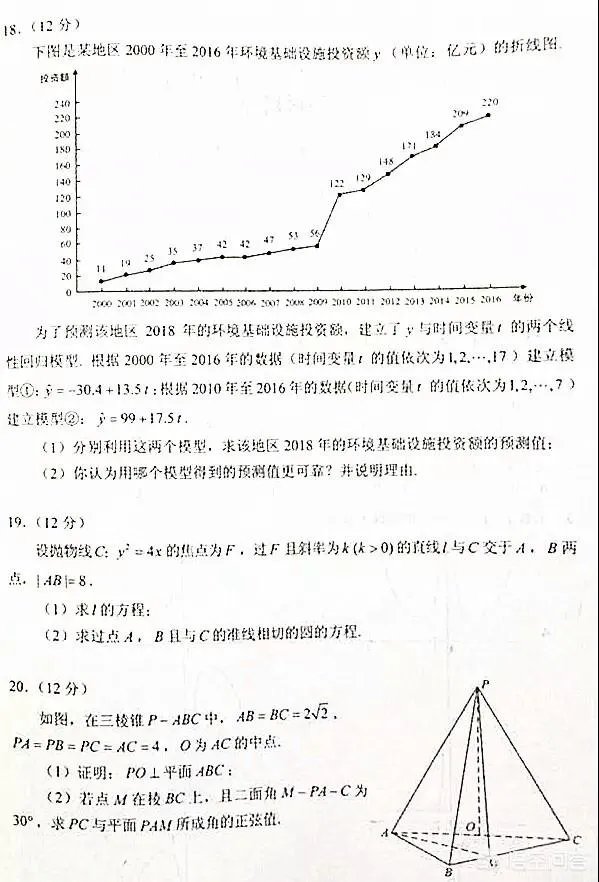 18.（12 分）
下图是某地区 2000 年至 2016 年环境基础设施投资额 y （单位：亿元）的折线图.
投资额
240
220
200
180
160
140
120
100
80
60
40
20
0
11 19 25 35 37 42 42 47 53 56 122 129 148 171 184 209 220
2000 2001 2002 2003 2004 2005 2006 2007 2008 2009 2010 2011 2012 2013 2014 2015 2016 年份
为了预测该地区 2018 年的环境基础设施投资额，建立了 y 与时间变量 t 的两个线
性回归模型. 根据 2000 年至 2016 年的数据（时间变量 t 的值依次为 1,2,⋯,17 ）建立模
型①：ŷ = −30.4 + 13.5t；根据 2010 年至 2016 年的数据（时间变量 t 的值依次为 1,2,⋯,7 ）
建立模型②：ŷ = 99 + 17.5t .
（1）分别利用这两个模型，求该地区 2018 年的环境基础设施投资额的预测值；
（2）你认为用哪个模型得到的预测值更可靠？并说明理由.
19.（12 分）
设抛物线 C：y² = 4x 的焦点为 F ，过 F 且斜率为 k (k > 0) 的直线 l 与 C 交于 A ， B 两
点，| AB |= 8 .
（1）求 l 的方程；
（2）求过点 A ， B 且与 C 的准线相切的圆的方程.
20.（12 分）
如图，在三棱锥 P − ABC 中，AB = BC = 2√2 ，
PA = PB = PC = AC = 4 ，O 为 AC 的中点.
（1）证明：PO ⊥ 平面 ABC ；
（2）若点 M 在棱 BC 上，且二面角 M − PA − C 为
30° ，求 PC 与平面 PAM 所成角的正弦值.
P
A
O
C
B
M
悟空问答